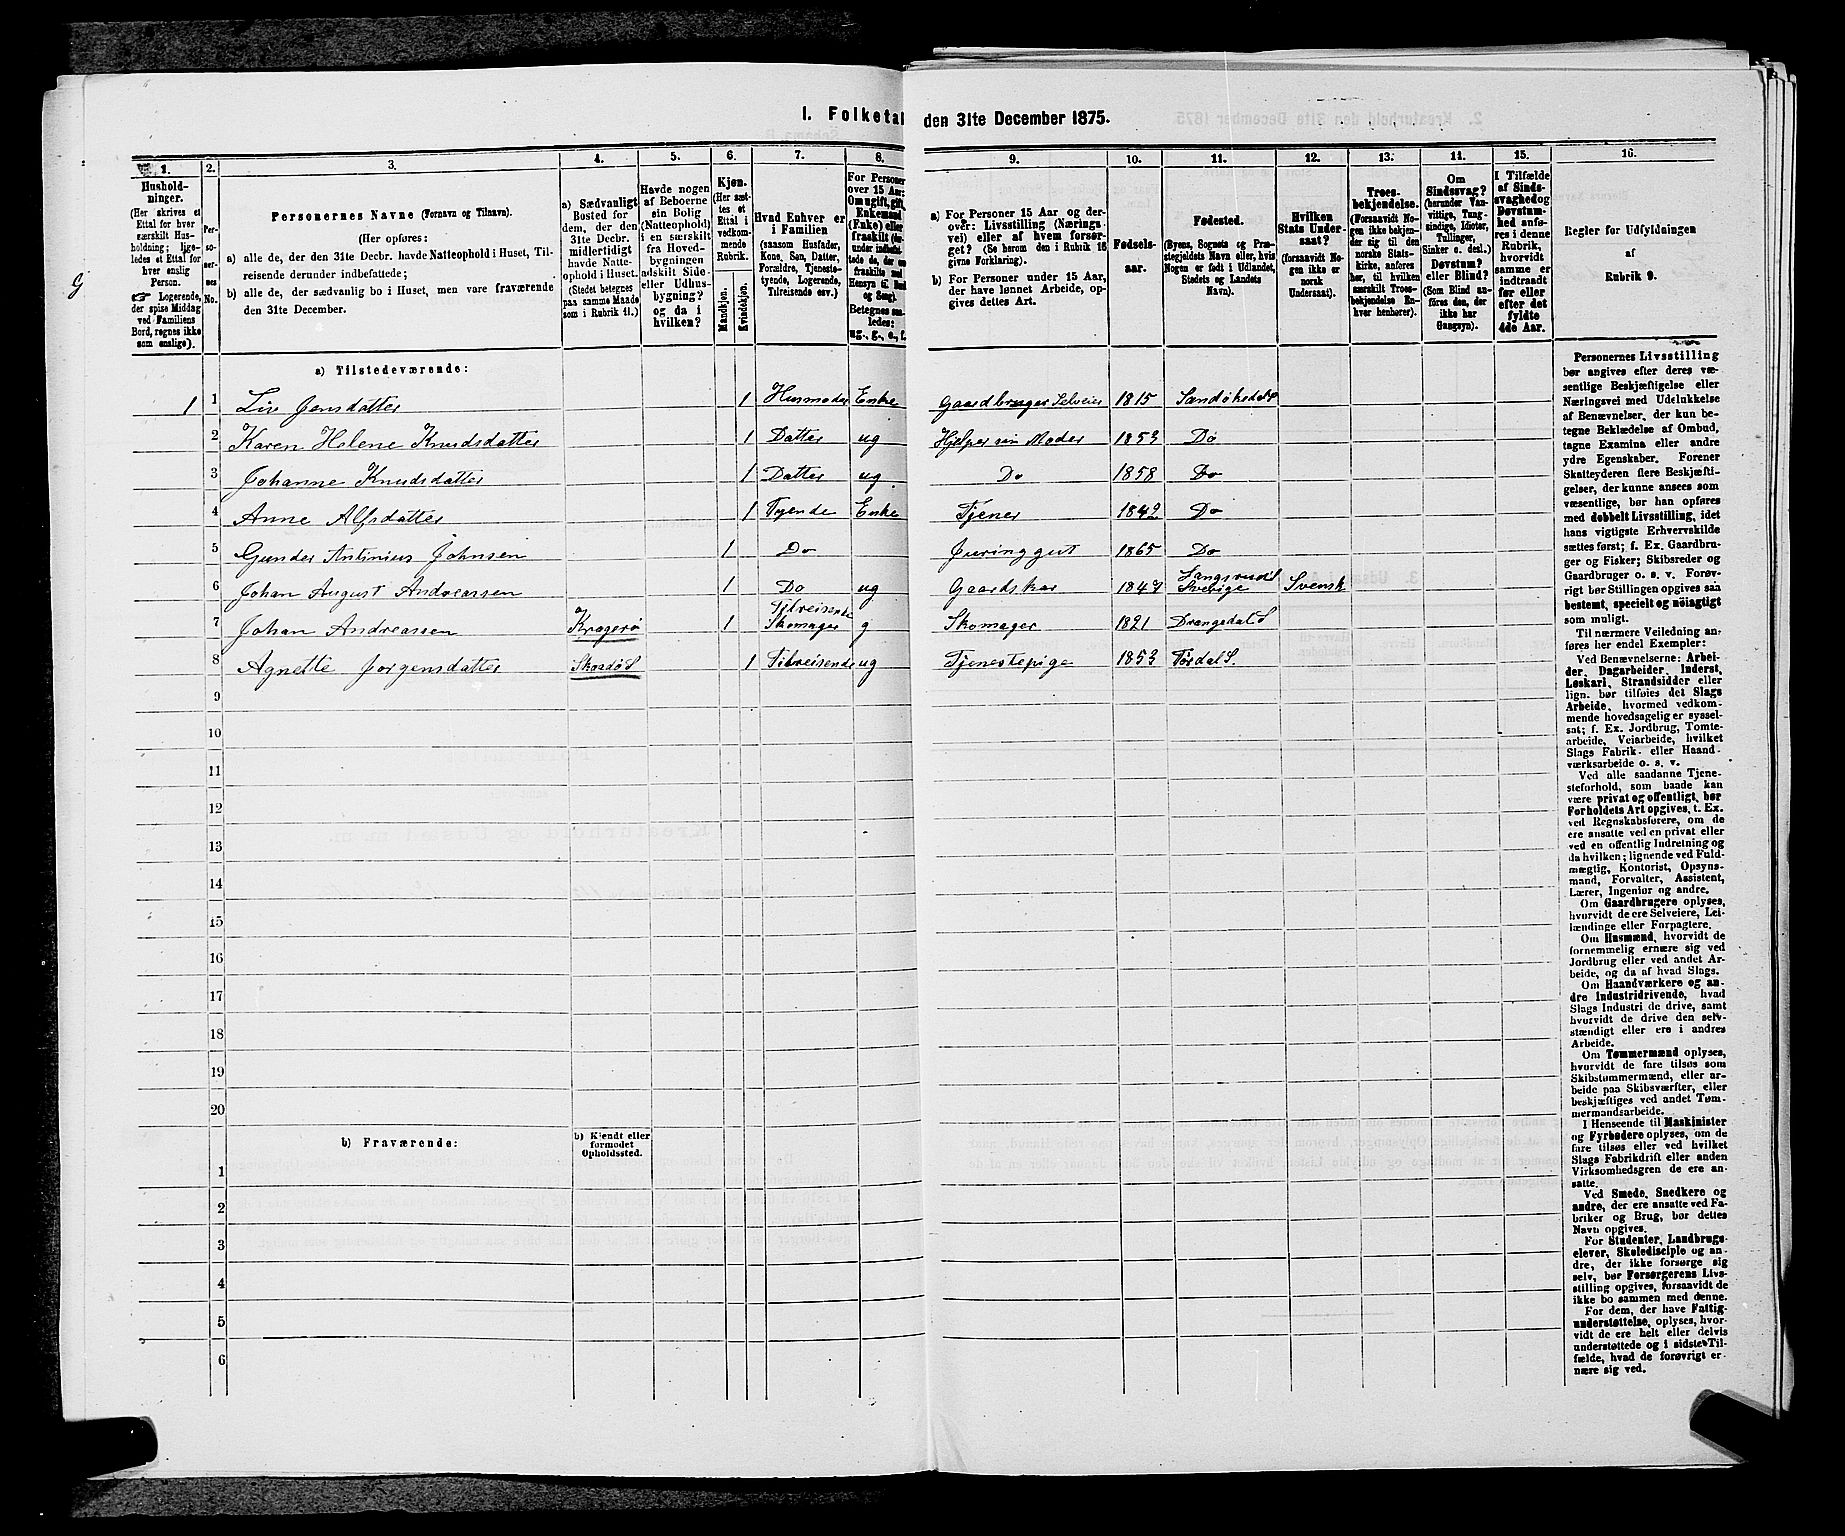 I. Folketal den 31te December 1875.
1. 2. 3. 4. 5. 6. 7. 8. 9. 10. 11. 12. 13. 14. 15. 16.
Hushold-
ninger.
(Her skrives et
Ettal for hver
særskilt Hus-
holdning; lige-
ledes et Ettal for
hver enslig
Person.
☞ Logerende,
der spise Middag
ved Familiens
Bord, regnes ikke
som enslige).
Per-
so-
ner-
nes
No.
Personernes Navne (Fornavn og Tilnavn).
(Her opføres:
a) alle de, der den 31te Decbr. havde Natteophold i Huset, Til-
reisende derunder indbefattede;
b) alle de, der sædvanlig bo i Huset, men vare fraværende
den 31te December.
a) Sædvanligt
Bosted for
dem, der den
31te Decbr.
midlertidigt
havde Natte-
ophold i Huset.
(Stedet betegnes
paa samme Maade
som i Rubrik 11.)
Havde nogen
af Beboerne
sin Bolig
(Natteophold)
i en særskilt
fra Hoved-
bygningen
adskilt Side-
eller Udhus-
bygning?
og da i
hvilken?
Kjøn.
(Her sæt-
tes et
Ettal i
vedkom-
mende
Rubrik.
Mandkjøn.
Kvindekjøn.
Hvad Enhver er
i Familien
(saasom Husfader,
Kone, Søn, Datter,
Forældre, Tjeneste-
tyende, Logerende,
Tilreisende osv.)
For Personer
over 15 Aar:
Om ugift, gift,
Enkemand
(Enke) eller
fraskilt
Betegnes saa-
ledes:
ug., g., e., f.
a) For Personer 15 Aar og der-
over: Livsstilling (Nærings-
vei) eller af hvem forsør-
get? (Se herom den i Rubrik 16
givne Forklaring).
b) For Personer under 15 Aar,
der have lønnet Arbeide, op-
gives dettes Art.
Fødsels-
aar.
Fødested.
(Byens, Sognets og Præ-
stegjeldets Navn eller, hvis
Nogen er født i Udlandet,
Stedets og Landets
Navn).
Hvilken
Stats Under-
saat?
(forsaavidt No-
gen ikke er
norsk
Undersaat).
Troes-
bekjendelse.
(Forsaavidt No-
gen ikke bekjen-
der sig til den
norske Stats-
kirke, anføres
her, til hvilken
særskilt Troes-
bekjendelse En-
hver henhører).
Om
Sindssvag?
(herunder Van-
vittige, Tung-
sindige, Idioter,
Tullinger,
Sinker o. desl.)
Døvstum?
eller Blind?
(Som Blind an-
føres den, der
ikke har
Gangsyn).
I Tilfælde
af Sinds-
svaghed og
Døvstum-
hed anfø-
res i denne
Rubrik,
hvorvidt
samme er
indtraadt
før eller
efter det
fyldte
4de Aar.
Regler for Udfyldningen
af
Rubrik 9.
a) Tilstedeværende:
1 1 Live Jensdatter 1 Husmoder Enke Gaardbruger Selveier 1815 Sandøkedal
2 Karen Helene Knudsdatter 1 Datter ug Hjelper sin Moder 1853 Do
3 Johanne Knudsdatter 1 Datter ug Do 1858 Do
4 Anne Alfsdatter 1 Tyende Enke Tjener 1842 Do
5 Gunder Antinius Johnsen 1 Do Juringgut 1865 Do
6 Johan August Andreassen 1 Do ug Gaardskar Sverige Svensk
7 Johan Andreassen Kragerø 1 Tilreisende Skomager g Skomager 1821 Drangedal S
8 Agnette Jørgensdatter 1 Tilreisende ug Tjenestepige 1853 Tørdal S.
9
10
11
12
13
14
15
16
17
18
19
20
b) Fraværende:
b) Kjendt eller
formodet
Opholdssted.
1
2
3
4
5
6
Personernes Livsstilling
bør angives efter deres væ-
sentlige Beskjæftigelse eller
Næringsvei med Udelukkelse
af Benævnelser, der kun be-
tegne Beklædelse af Ombud,
tagne Examina eller andre
ydre Egenskaber. Forener
Skatteyderen flere Beskjæfti-
gelser, der kunne ansees som
væsentlige, bør han opføres
med dobbelt Livsstilling, idet
hans vigtigste Erhvervskilde
sættes først; f. Ex. Gaardbru-
ger og Fisker; Skibsreder og
Gaardbruger o. s. v. Forøv-
rigt bør Stillingen opgives saa
bestemt, specielt og nöiagtigt
som muligt.
Til nærmere Veiledning an-
føres her endel Exempler:
Ved Benævnelserne: Arbei-
der, Dagarbeider, Inderst,
Løskarl, Strandsidder eller
lign. bør tilføies det Slags
Arbeide, hvormed vedkom-
mende hovedsagelig er syssel-
sat; f. Ex. Jordbrug, Tomte-
arbeide, Veiarbeide, hvilket
Slags Fabrik- eller Haand-
værksarbeide o. s. v.
Ved alle saadanne Tjene-
steforhold, som baade kan
være privat og offentligt, bør
Forholdets Art opgives, t. Ex.
ved Regnskabsførere, om de
ere ansatte ved en privat eller
ved en offentlig Indretning og
da hvilken; lignende ved Fuld-
mægtig, Kontorist, Opsyns-
mand, Forvalter, Assistent,
Lærer, Ingeniør og andre.
Om Gaardbrugere oplyses,
hvorvidt de ere Selveiere, Lei-
lændinge eller Forpagtere.
Om Husmænd, hvorvidt de
fornemmelig ernære sig ved
Jordbrug eller ved andet Ar-
beide, og da af hvad Slags.
Om Haandværkere og an-
dre Industridrivende, hvad
Slags Industri de drive, samt
hvorvidt de drive den selv-
stændigt eller ere i andres
Arbeide.
Om Tømmermænd oplyses,
hvorvidt de fare tilsøs som
Skibstømmermænd, eller ar-
beide paa Skibsværfter, eller
beskjæftiges ved andet Tøm-
mermandsarbeide.
I Henseende til Maskinister
og Fyrbødere oplyses, om de
fare tilsøs eller ved hvilket
Slags Fabrikdrift eller anden
Virksomhedsgren de ere an-
satte.
Ved Smede, Snedkere og
andre, der ere ansatte ved Fa-
briker og Brug, bør dettes
Navn opgives.
For Studenter, Landbrugs-
elever, Skoledisciple og an-
dre, der ikke forsørge sig
selv, bør Forsørgerens Livs-
stilling opgives, forsaavidt de
ikke bo sammen med denne.
For dem, der have Fattig-
understøttelse, oplyses, hvor-
vidt de ere helt eller delvis
understøttede og i sidste Til-
fælde, hvad de forøvrigt er-
nære sig ved.